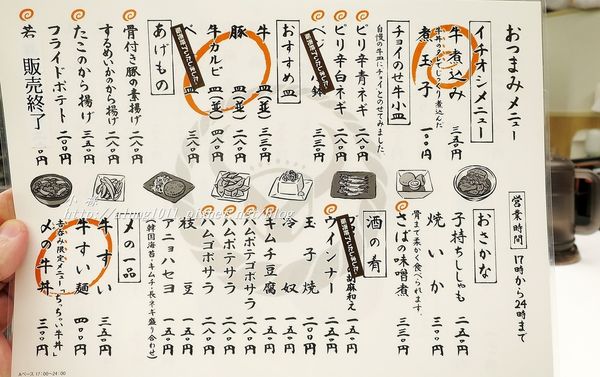 おつまみメニュー
イチオシメニュー
牛煮込み 三五〇円
煮玉子 一〇〇円
チョイのせ牛小皿
自慢の牛皿にチョイとのせてみました。
ピリ辛青ネギ 二八〇円
ピリ辛白ネギ 二八〇円
おすすめ皿
牛皿(並) 三三〇円
豚皿(並) 二四〇円
牛カルビ皿(並) 四八〇円
あげもの
骨付き豚の素揚げ 二八〇円
するめいかのから揚げ 三五〇円
たこのから揚げ 三五〇円
フライドポテト 二〇〇円
若
販売終了
〇円
営業時間 17時から24時まで
おさかな
子持ちししゃも 二八〇円
焼いか 三三〇円
骨まで柔かく食べられます。
さばの味噌煮 三三〇円
酒の肴
胡麻和え 一五〇円
ウインナー 二八〇円
玉子焼 二〇〇円
冷奴 一五〇円
キムチ豆腐 二八〇円
ハムポテゴボサラ 二八〇円
ハムポテサラ 二八〇円
ハムゴボサラ 二八〇円
枝豆 一五〇円
アニョハセヨ 一五〇円
(韓国海苔・キムチ・長ネギ盛り合わせ)
〆の一品
牛すい 三五〇円
牛すい麺 四〇〇円
吉呑み限定メニュー「ちっちゃい牛丼」
〆の牛丼 三〇〇円
Aベース 17:00〜24:00